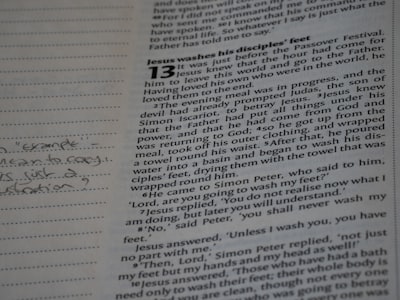 have spoken will condemn
⁴⁹For I did not speak on my own,
who sent me commanded me to
have spoken. ⁵⁰I know that his command
to eternal life. So whatever I say is just what the
Father has told me to say.'
Jesus washes his disciples' feet
13 It was just before the Passover Festival.
Jesus knew that the hour had come for
him to leave this world and go to the Father.
Having loved his own who were in the world, he
loved them to the end.
²The evening meal was in progress, and the
devil had already prompted Judas, the son of
Simon Iscariot, to betray Jesus. ³Jesus knew
that the Father had put all things under his
power, and that he had come from God and
was returning to God; ⁴so he got up from the
meal, took off his outer clothing, and wrapped
a towel round his waist. ⁵After that, he poured
water into a basin and began to wash his dis-
ciples' feet, drying them with the towel that was
wrapped round him.
⁶He came to Simon Peter, who said to him,
'Lord, are you going to wash my feet?'
⁷Jesus replied, 'You do not realise now what I
am doing, but later you will understand.'
⁸'No,' said Peter, 'you shall never wash my
feet.'
Jesus answered, 'Unless I wash you, you have
no part with me.'
⁹'Then, Lord,' Simon Peter replied, 'not just
my feet but my hands and my head as well!'
¹⁰Jesus answered, 'Those who have had a bath
need only to wash their feet; their whole body is
clean. And you are clean, though not every one
who was going to betray
"example -
mean to copy.
just a